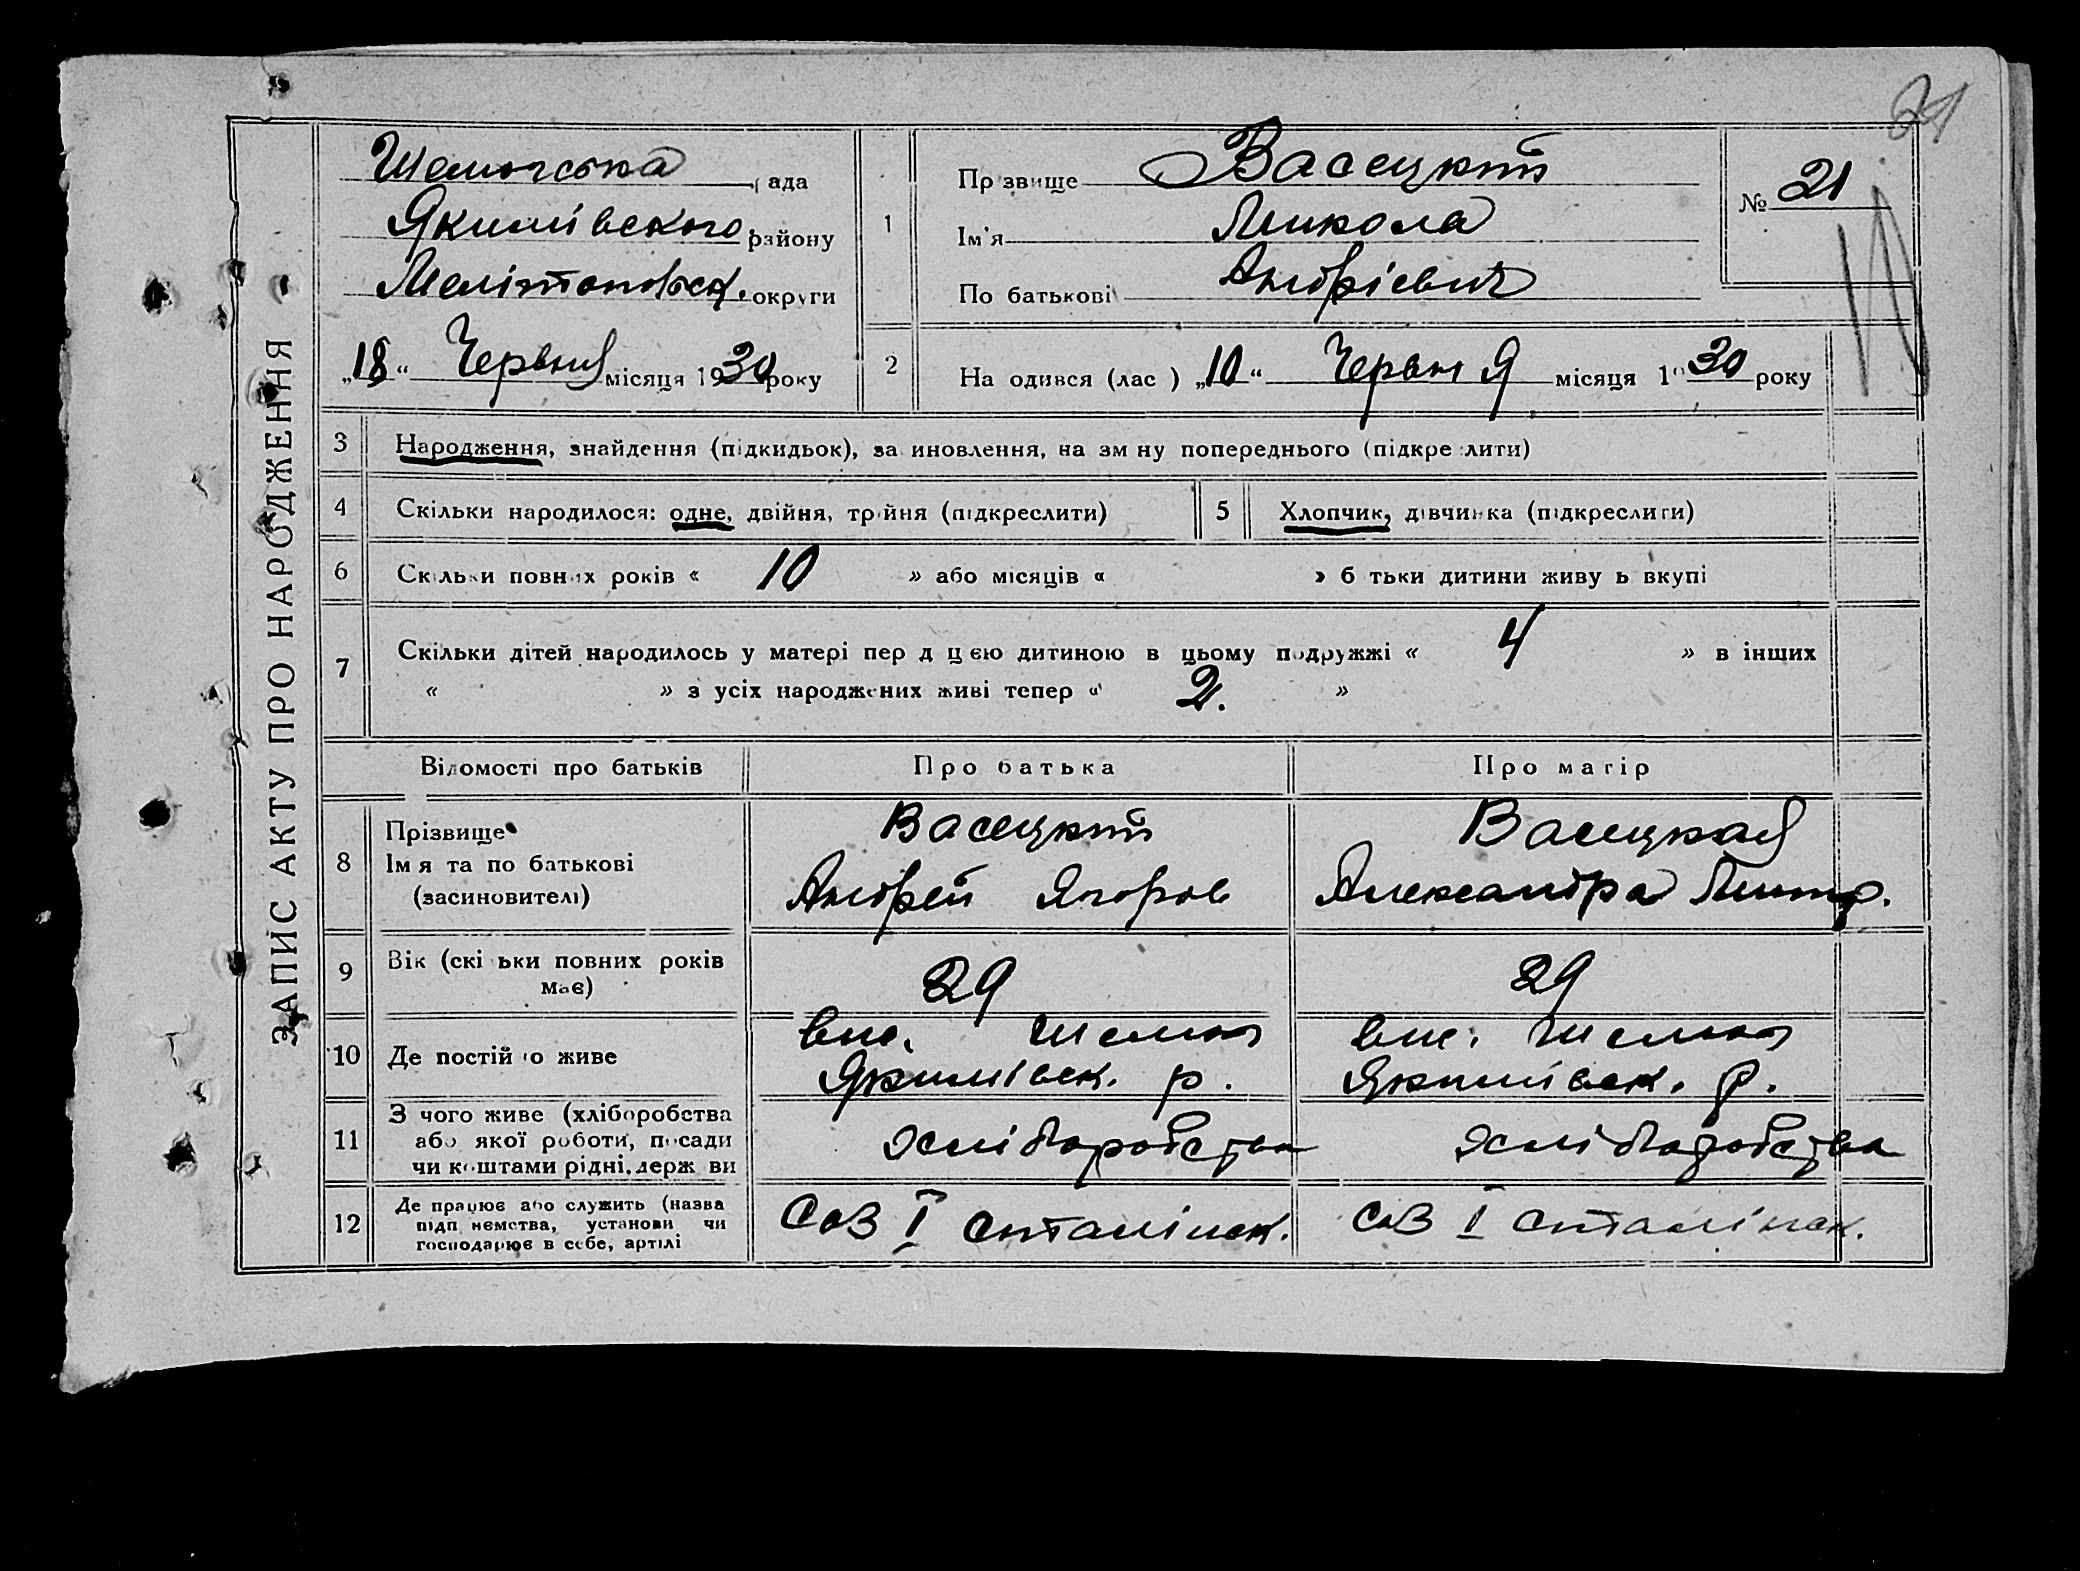 21
ЗАПИС АКТУ ПРО НАРОДЖЕННЯ
Шелюгська рада
Якимівского району
Мелітопольск. округи
„18“ Червня місяця 1930 року
1
Прізвище Васецкий
Ім'я Микола
По батькові Андрієвич
№ 21
2
На одився (лас ) „10“ Червня місяця 1930 року
3 Народження, знайдення (підкидьок), за иновлення, на зм ну попереднього (підкре лити)
4 Скільки народилося: одне, двійня, трійня (підкреслити)
5 Хлопчик, дівчинка (підкреслити)
6 Скільки повних років « 10 » або місяців « » б тьки дитини живу ь вкупі
7 Скільки дітей народилось у матері пер д цією дитиною в цьому подружжі « 4 » в інших
« » з усіх народжених живі тепер « 2. »
Відомості про батьків Про батька Про матір
8 Прізвище
Ім я та по батькові
(засиновителі)
Васецкий
Андрей Ягоров
Васецкая
Александра Дмитр.
9 Вік (скі ьки повних років
має)
29
29
10 Де постій о живе
вис. Шелюги
Якимівск. р.
вис. Шелюги
Якимівск. р.
11 З чого живе (хліборобства
або якої роботи, посади
чи коштами рідні, держ ви
хліборобства
хліборобства
12 Де працює або служить (назва
підп иємства, установи чи
господарює в себе, артілі
СОЗ I Сталінск.
СОЗ I Сталінск.